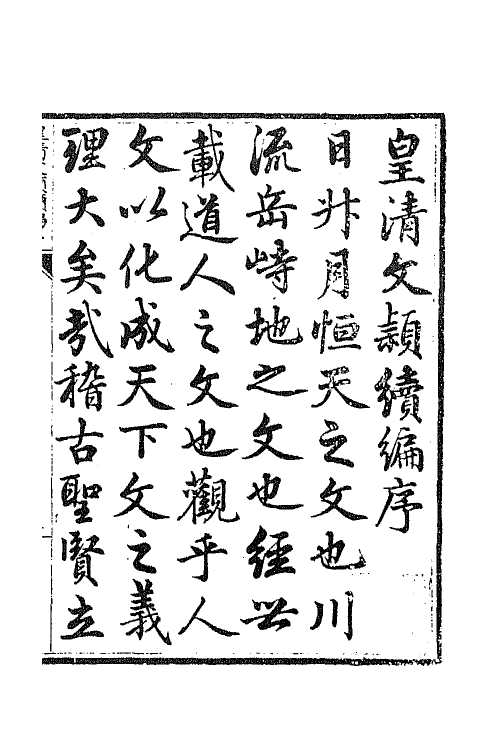 皇清文穎續編序
日升月恒天之文也川
流岳峙地之文也經世
載道人之文也觀乎人
文以化成天下文之義
理大矣哉稽古聖賢立